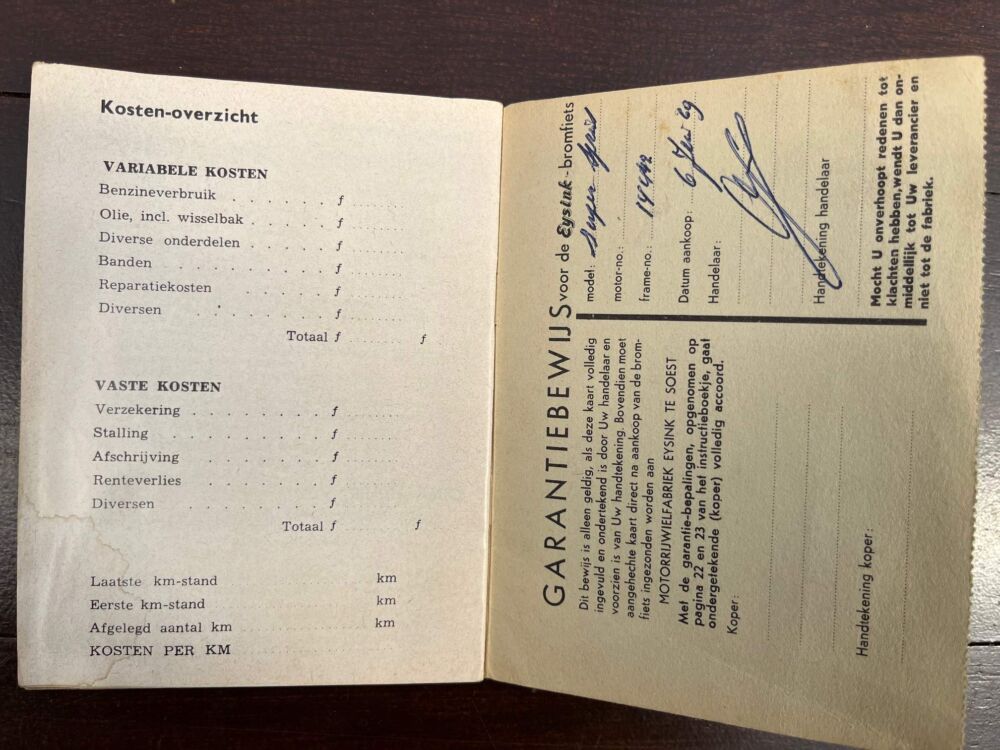 Kosten-overzicht
VARIABELE KOSTEN
Benzineverbruik . . . . . . f
Olie, incl. wisselbak . . . . . f
Diverse onderdelen . . . . . f
Banden . . . . . . . f
Reparatiekosten . . . . . f
Diversen . . . . . . f
Totaal f f
VASTE KOSTEN
Verzekering . . . . . . . f
Stalling . . . . . . . f
Afschrijving . . . . . . . f
Renteverlies . . . . . . f
Diversen . . . . . . f
Totaal f f
Laatste km-stand km
Eerste km-stand km
Afgelegd aantal km km
KOSTEN PER KM
GARANTIEBEWIJS voor de Eysink-bromfiets
Dit bewijs is alleen geldig, als deze kaart volledig
ingevuld en ondertekend is door Uw handelaar en
voorzien is van Uw handtekening. Bovendien moet
aangehechte kaart direct na aankoop van de brom-
fiets ingezonden worden aan
MOTORRIJWIELFABRIEK EYSINK TE SOEST
Met de garantie-bepalingen, opgenomen op
pagina 22 en 23 van het instructieboekje, gaat
ondergetekende (koper) volledig accoord.
Koper:
Handtekening koper:
model: super
motor-no.:
frame-no.:
Datum aankoop: 6
Handelaar:
Handtekening handelaar
Mocht U onverhoopt redenen tot
klachten hebben, wendt U dan on-
middellijk tot Uw leverancier en
niet tot de fabriek.